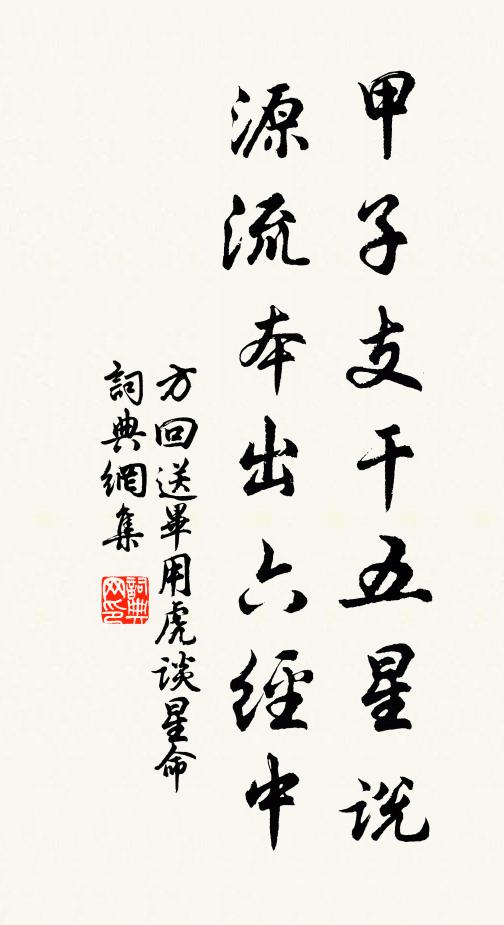 甲子支干五星说
源流本出六經中
方回送畢用虎谈星命
詞典網集
詞典网印